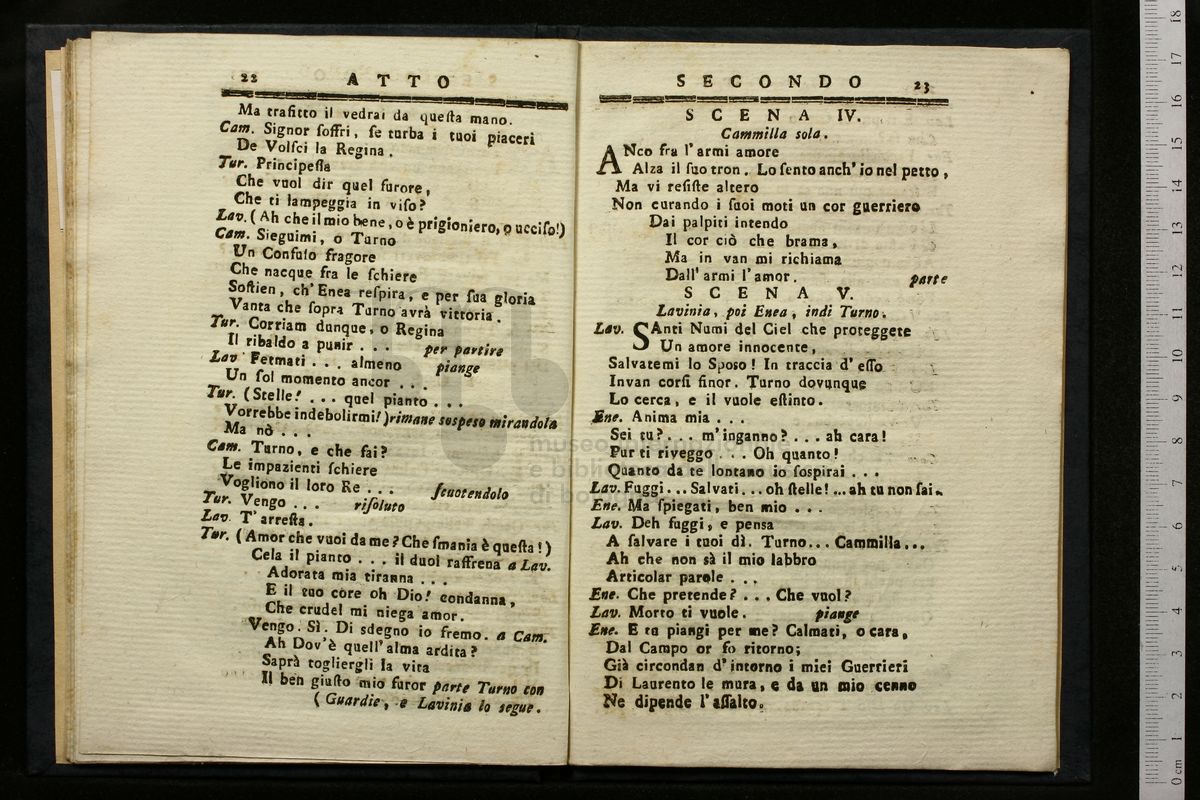 22 ATTO
Ma trafitto il vedrai da queſta mano.
Cam. Signor ſoffri, ſe turba i tuoi piaceri
De Volſci la Regina.
Tur. Principeſſa
Che vuol dir quel furore,
Che ti lampeggia in viſo?
Lav. (Ah che il mio bene, o è prigioniero, o ucciſo!)
Cam. Sieguimi, o Turno
Un Confuſo fragore
Che nacque fra le ſchiere
Soſtien, ch' Enea reſpira, e per ſua gloria
Vanta che ſopra Turno avrà vittoria.
Tur. Corriam dunque, o Regina
Il ribaldo a punir . . . per partire
Lav Fermati . . . almeno piange
Un ſol momento ancor . . .
Tur. (Stelle! . . . quel pianto . . .
Vorrebbe indebolirmi!) rimane sospeso mirandola
Ma nò . . .
Cam. Turno, e che fai?
Le impazienti ſchiere
Vogliono il loro Re . . . ſcuotendolo
Tur. Vengo . . . riſoluto
Lav. T' arreſta.
Tur. (Amor che vuoi da me? Che ſmania è queſta!)
Cela il pianto . . . il duol raffrena a Lav.
Adorata mia tiranna . . .
E il tuo core oh Dio! condanna,
Che crudel mi niega amor.
Vengo. Sì. Di sdegno io fremo. a Cam.
Ah Dov'è quell' alma ardita?
Saprà togliergli la vita
Il ben giuſto mio furor parte Turno con
(Guardie, e Lavinia lo segue.
SECONDO 23
SCENA IV.
Cammilla sola.
ANco fra l' armi amore
Alza il ſuo tron. Lo ſento anch' io nel petto,
Ma vi reſiſte altero
Non curando i ſuoi moti un cor guerriero
Dai palpiti intendo
Il cor ciò che brama,
Ma in van mi richiama
Dall' armi l' amor. parte
SCENA V.
Lavinia, poi Enea, indi Turno.
Lav. SAnti Numi del Ciel che proteggete
Un amore innocente,
Salvatemi lo Sposo! In traccia d' eſſo
Invan corſi finor. Turno dovunque
Lo cerca, e il vuole eſtinto.
Ene. Anima mia . . .
Sei tu? . . . m' inganno? . . . ah cara!
Pur ti riveggo . . . Oh quanto!
Quanto da te lontano io ſospirai . . .
Lav. Fuggi... Salvati... oh ſtelle! ... ah tu non ſai.
Ene. Ma ſpiegati, ben mio . . .
Lav. Deh fuggi, e pensa
A ſalvare i tuoi dì. Turno... Cammilla...
Ah che non sà il mio labbro
Articolar parole . . .
Ene. Che pretende? . . . Che vuol?
Lav. Morto ti vuole. piange
Ene. E tu piangi per me? Calmati, o cara,
Dal Campo or fo ritorno;
Già circondan d' intorno i miei Guerrieri
Di Laurento le mura, e da un mio cenno
Ne dipende l' aſſalto.